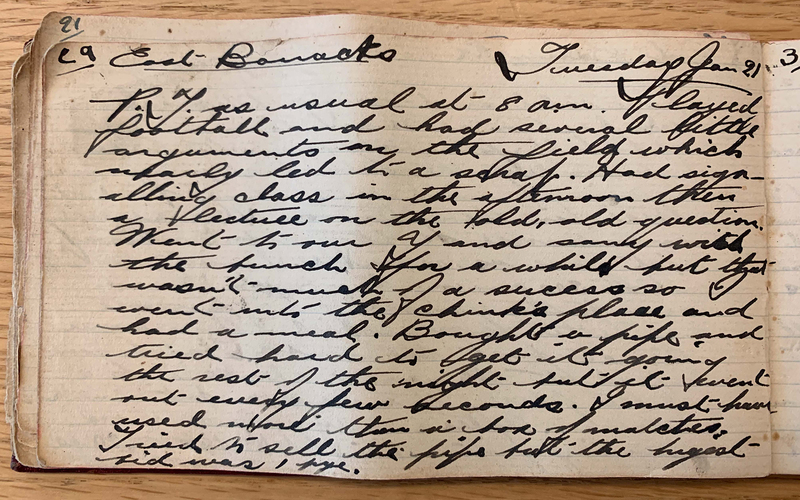 21
29 East Barracks Tuesday Jan 21
P.T as usual at 8 am. Played
football and had several little
arguments on the field which
nearly led to a scrap. Had sign-
alling class in the afternoon then
a lecture on the old, old question.
Went to our Y and sang with
the bunch for a while but that
wasn't much of a sucess so
went into the chink's place and
had a meal. Bought a pipe and
tried hard to get it going
the rest of the night but it went
out every few seconds. I must have
used more than a box of matches.
Tried to sell the pipe but the highest
bid was 1
3